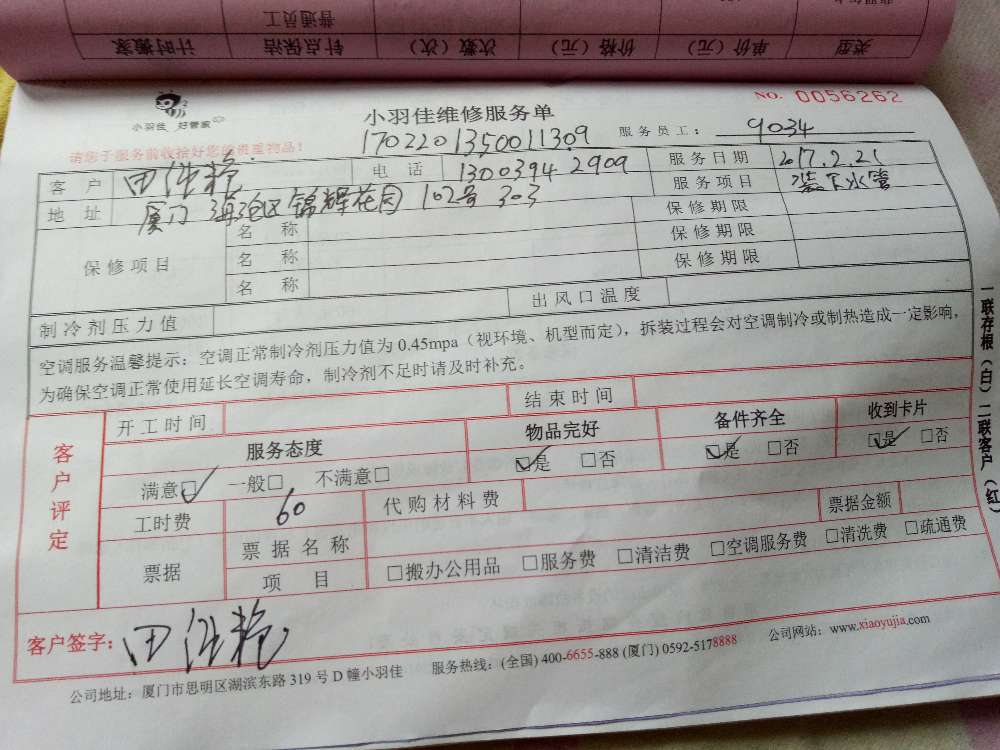 普通员工
类型 单价（元） 价格（元） 次数（次） 钟点保洁 计时搬家
小羽佳 好管家
小羽佳维修服务单
NO. 0056262
1702201350011309
服务员工： 9034
请您于服务前收拾好您的贵重物品！
客户 田 电话 13003942909 服务日期 2017.2.21
地址 厦门 海沧区锦辉花园 102号 303 服务项目 装下水管
保修项目 名称 保修期限
名称 保修期限
名称 保修期限
制冷剂压力值 出风口温度
空调服务温馨提示：空调正常制冷剂压力值为 0.45mpa（视环境、机型而定），拆装过程会对空调制冷或制热造成一定影响，
为确保空调正常使用延长空调寿命，制冷剂不足时请及时补充。
客户评定
开工时间 结束时间
服务态度 物品完好 备件齐全 收到卡片
满意☑ 一般□ 不满意□ ☑是 □否 ☑是 □否 ☑是 □否
工时费 60 代购材料费 票据金额
票据 票据名称
项目 □搬办公用品 □服务费 □清洁费 □空调服务费 □清洗费 □疏通费
客户签字： 田
公司地址：厦门市思明区湖滨东路 319 号 D 幢小羽佳 服务热线：(全国) 400-6655-888 (厦门) 0592-5178888 公司网站：www.xiaoyujia.com
一联存根（白） 二联客户（红）